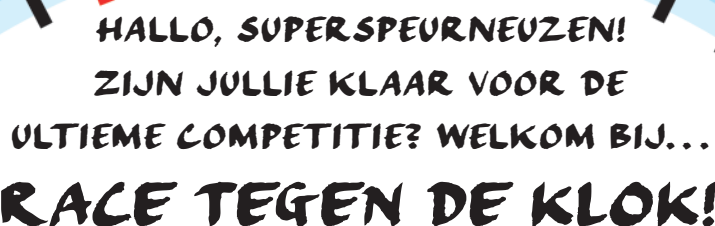 HALLO, SUPERSPEURNEUZEN!
ZIJN JULLIE KLAAR VOOR DE
ULTIEME COMPETITIE? WELKOM BIJ...
RACE TEGEN DE KLOK!